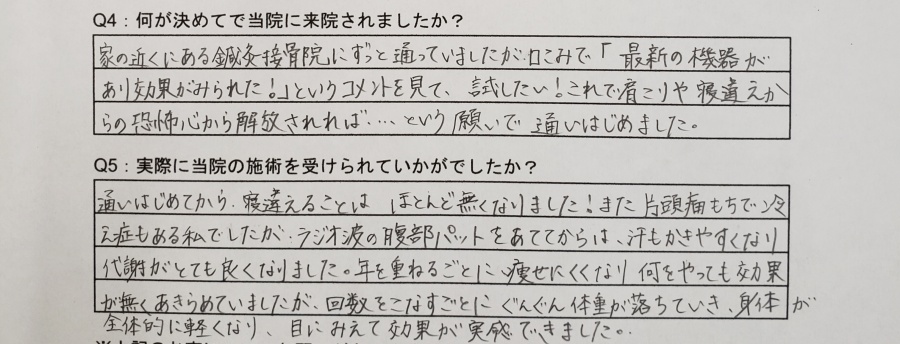 Q4：何が決めてで当院に来院されましたか？
家の近くにある鍼灸接骨院にずっと通っていましたが、口こみで「最新の機器が
あり効果がみられた！」というコメントを見て、試したい！これで肩こりや寝違えか
らの恐怖心から解放されれば・・・・という願いで通いはじめました。
Q5：実際に当院の施術を受けられていかがでしたか？
通いはじめてから、寝違えることは ほとんど無くなりました！また片頭痛もちで冷
え症もある私でしたが、ラジオ波の腹部パットをあててからは、汗もかきやすくなり
代謝がとても良くなりました。年を重ねるごとに、痩せにくくなり何をやっても効果
が無くあきらめていましたが、回数をこなすごとにぐんぐん体重が落ちていき、身体が
全体的に軽くなり、目にみえて効果が実感できました。